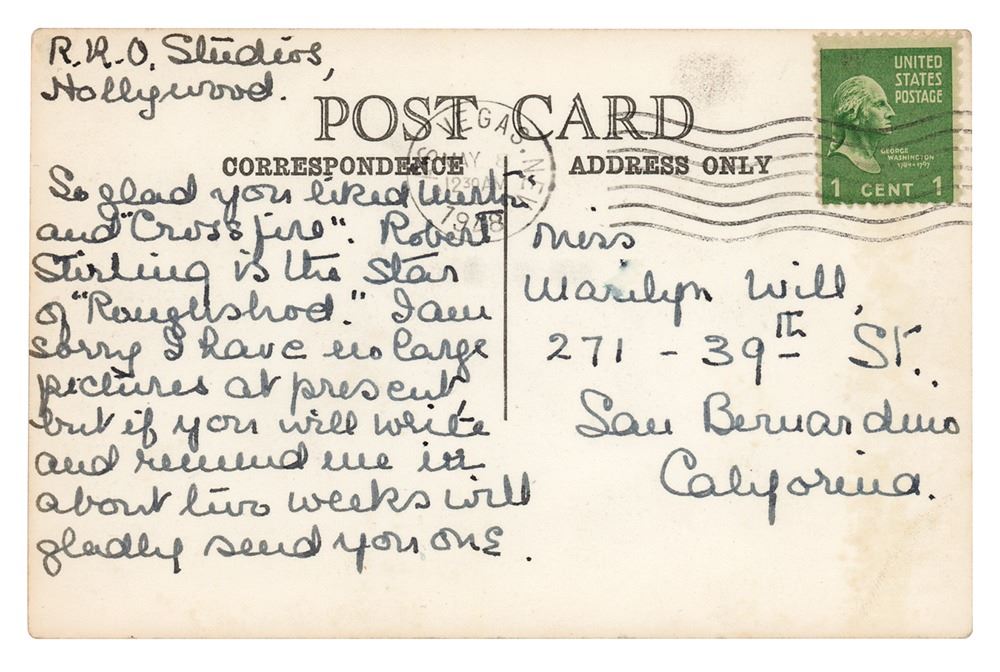 R.K.O. Studios,
Hollywood.
UNITED
STATES
POSTAGE
GEORGE
WASHINGTON
1789-1797
1 CENT 1
POST CARD
VEGAS, NEV
MAY 8
12 30 AM
1948
CORRESPONDENCE
ADDRESS ONLY
So glad you liked Merton
and "Crossfire". Robert
Sterling is the star
of "Roughshod." I am
sorry I have no large
pictures at present,
but if you will write
and remind me in
about two weeks will
gladly send you one.
Miss
Marilyn Will,
271 - 39th St.
San Bernardino
California.